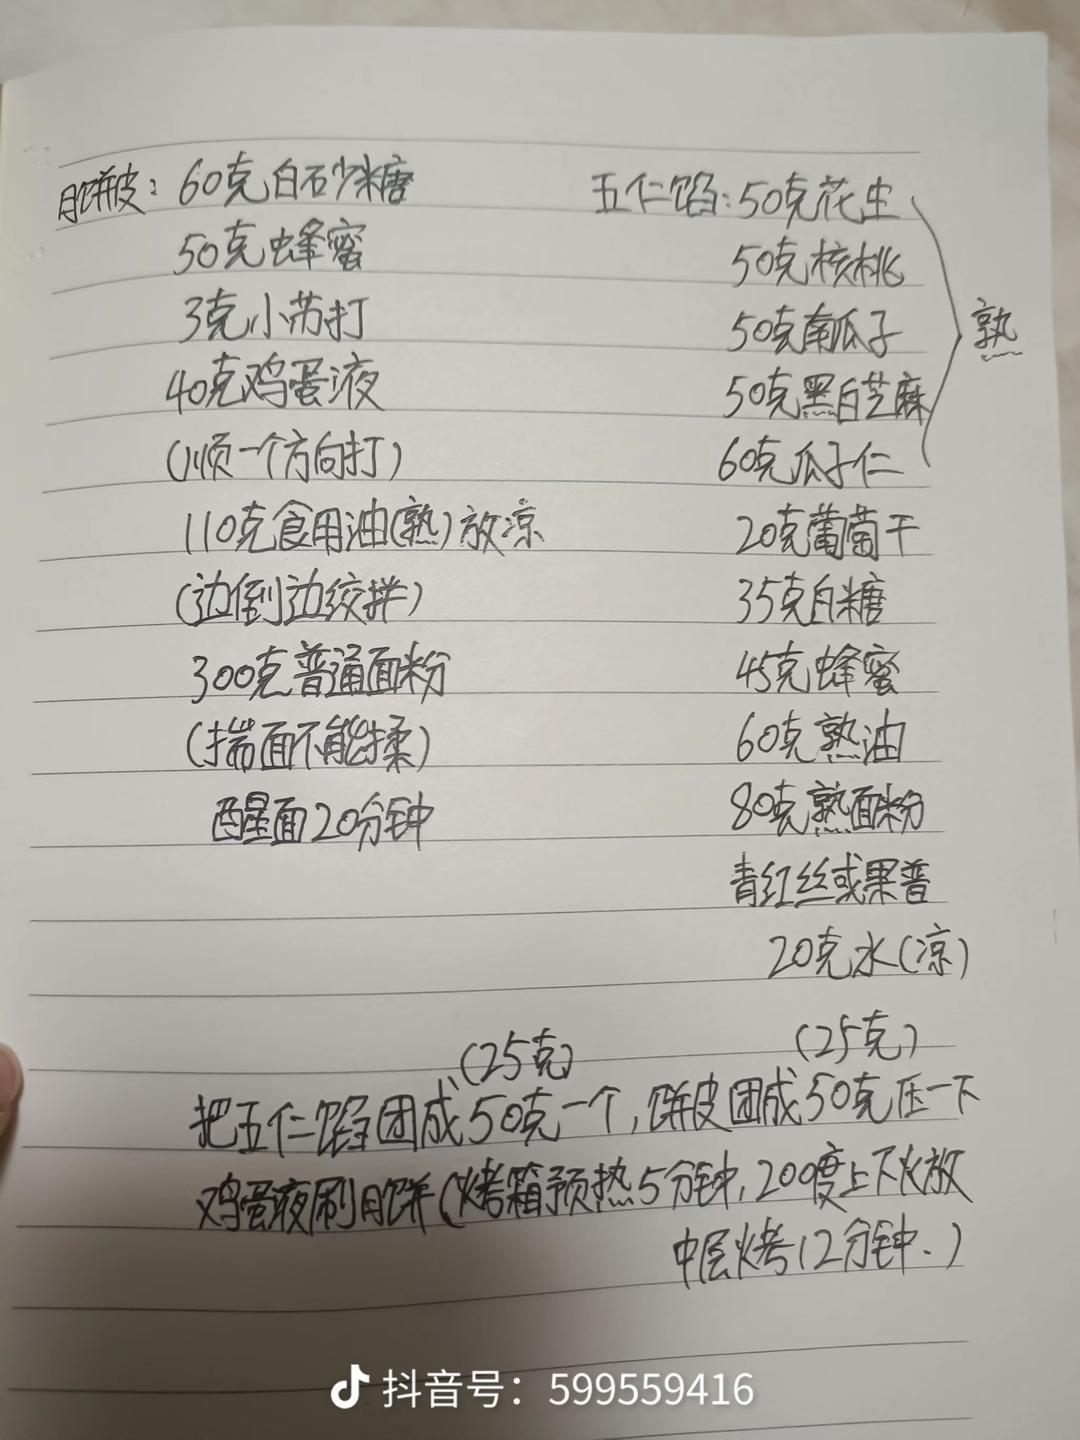 月饼皮：60克白砂糖
50克蜂蜜
3克小苏打
40克鸡蛋液
(顺一个方向打)
110克食用油(熟)放凉
(边倒边绞拌)
300克普通面粉
(揣面不能揉)
醒面20分钟
五仁馅：50克花生
50克核桃
50克南瓜子
50克黑白芝麻
60克瓜子仁
熟
20克葡萄干
35克白糖
45克蜂蜜
60克熟油
80克熟面粉
青红丝或果普
20克水(凉)
(25克) (25克)
把五仁馅团成50克一个,饼皮团成50克压一下
鸡蛋液刷月饼(烤箱预热5分钟,200度上下火放
中层烤12分钟.)
抖音号：599559416